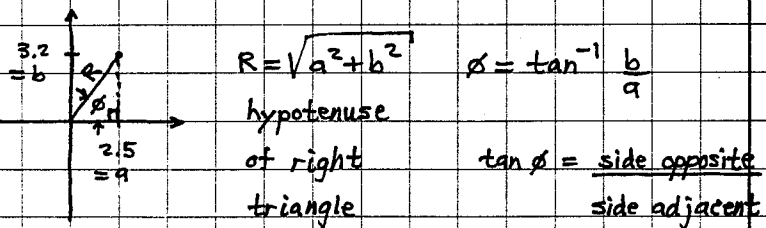 3.2
= b
R
φ
2.5
= a
R = √a²+b²
hypotenuse
of right
triangle
φ = tan⁻¹ b/a
tan φ = side opposite / side adjacent